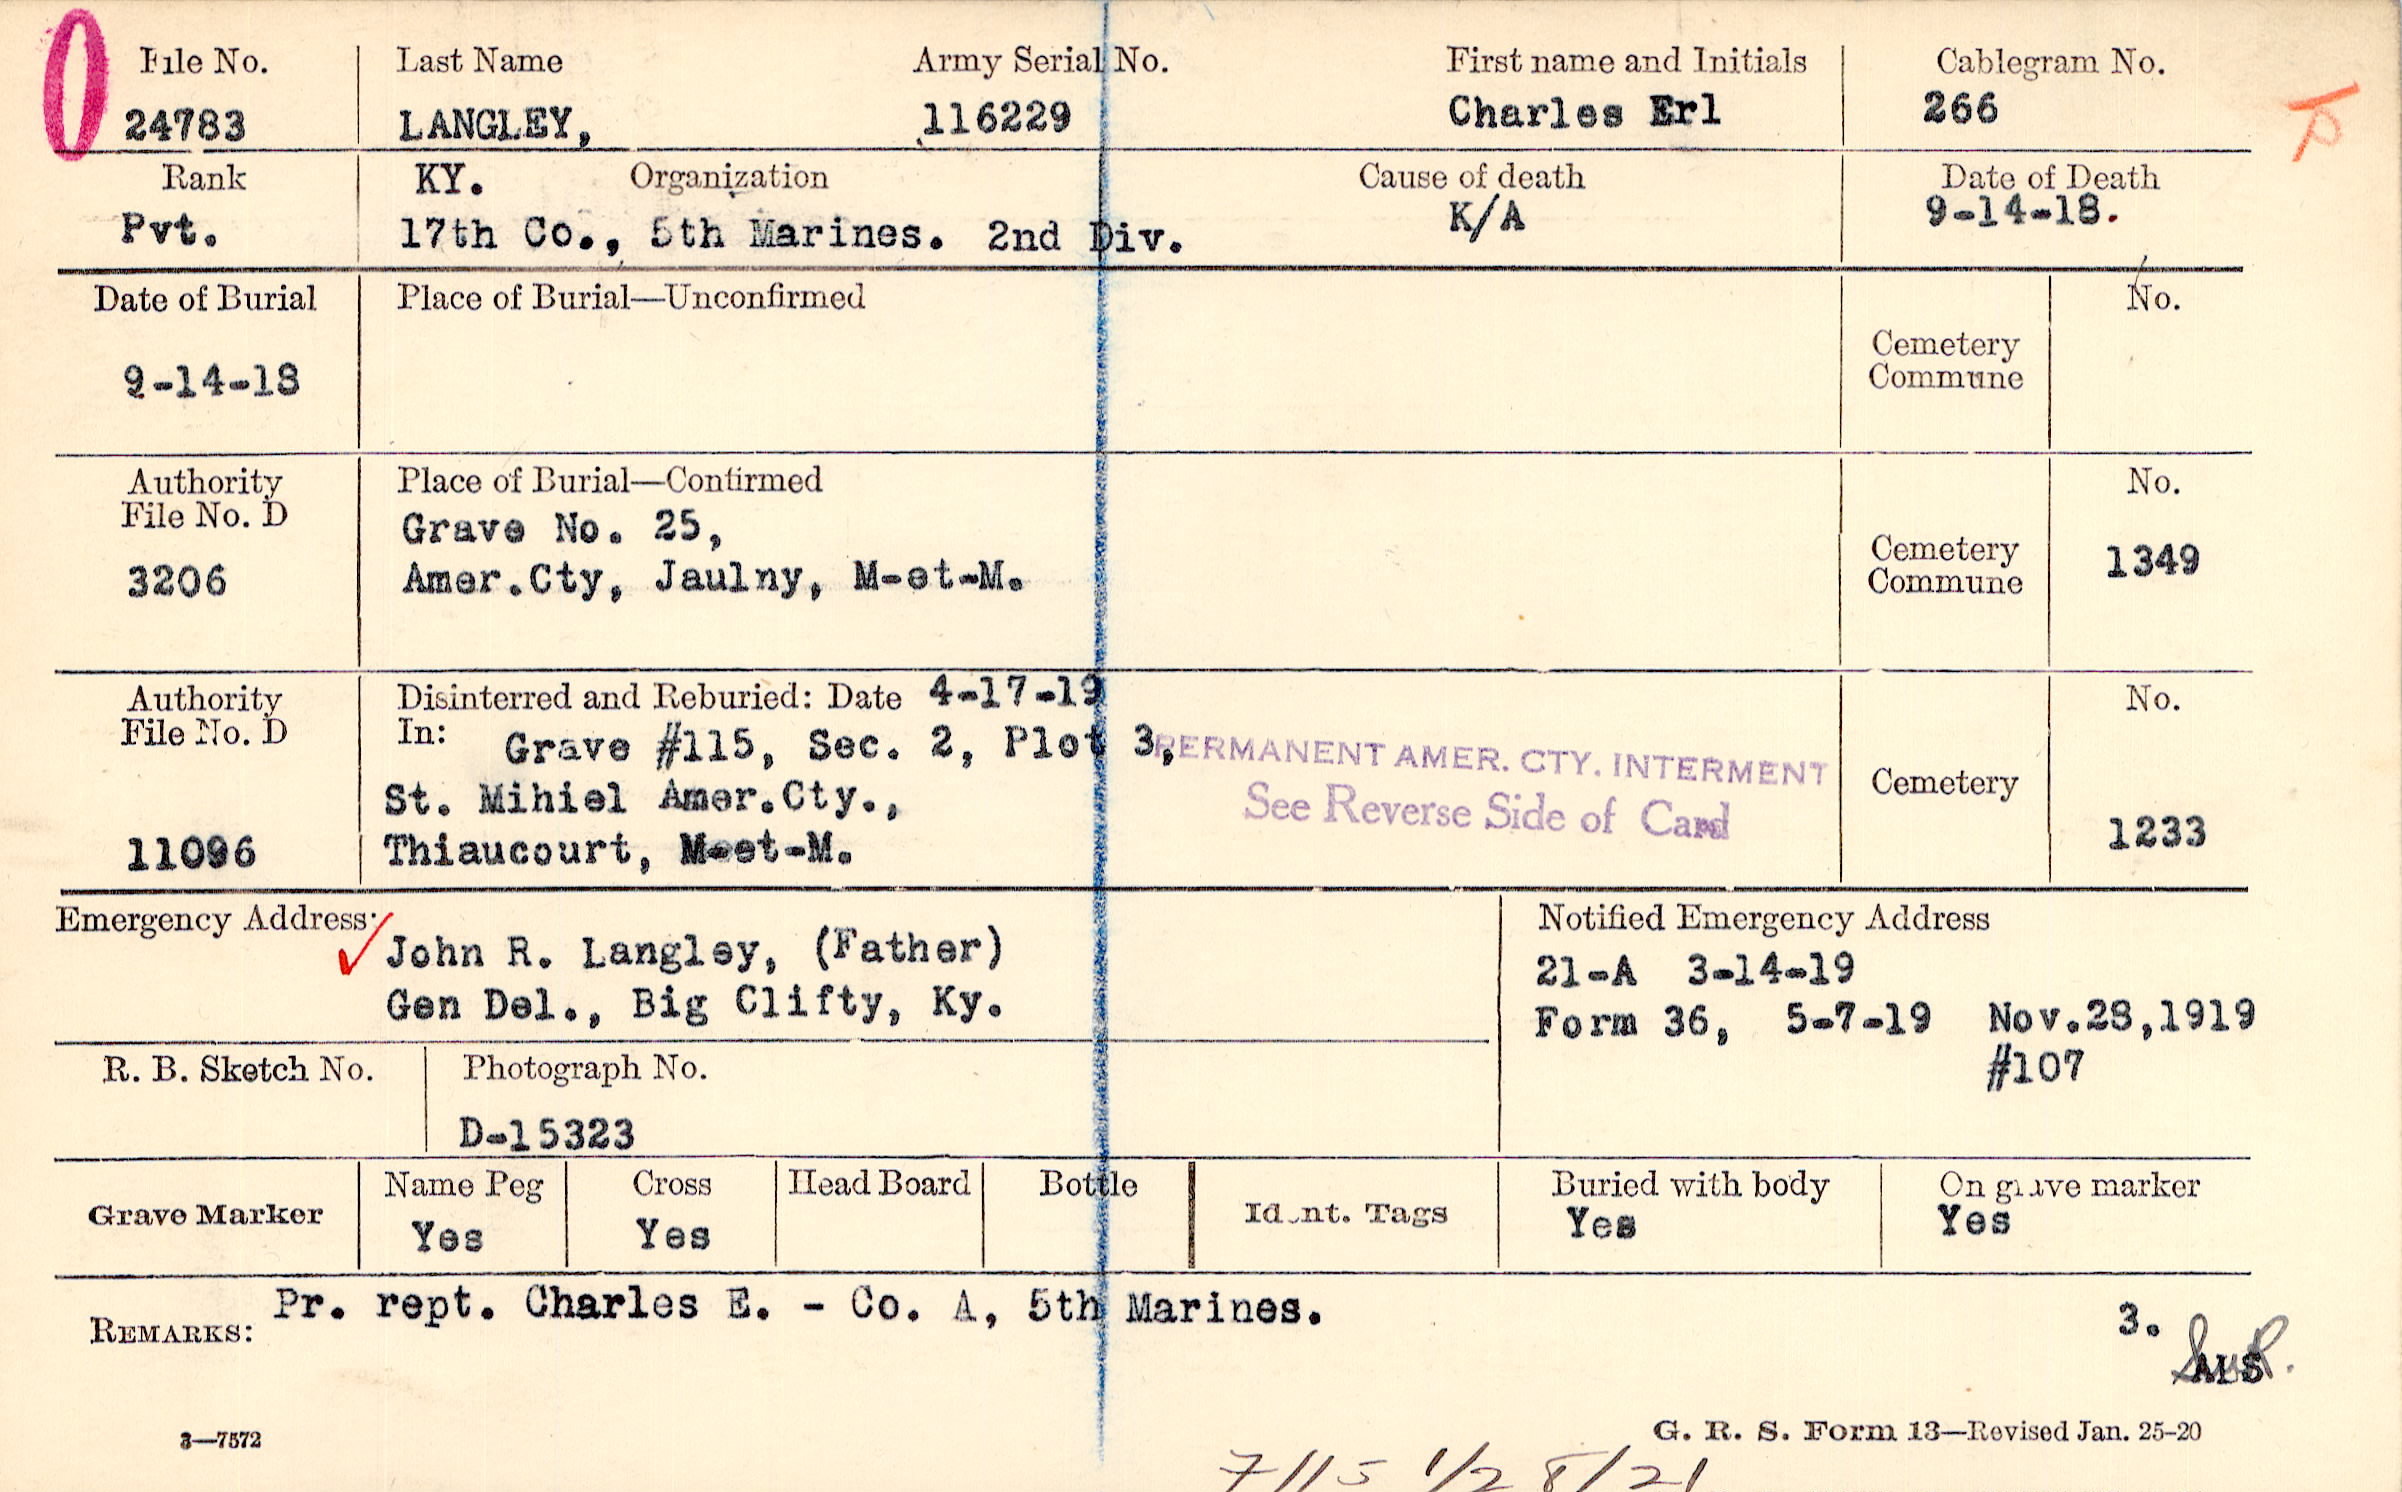 O
File No. Last Name Army Serial No. First name and Initials Cablegram No.
24783 LANGLEY, 116229 Charles Erl 266
Rank KY. Organization Cause of death Date of Death
Pvt. 17th Co., 5th Marines. 2nd Div. K/A 9-14-18.
Date of Burial Place of Burial—Unconfirmed No.
Cemetery
Commune
9-14-18
Authority Place of Burial—Confirmed No.
File No. D Grave No. 25,
Cemetery
Commune
3206 Amer.Cty, Jaulny, M-et-M. 1349
Authority Disinterred and Reburied: Date 4-17-19 No.
File No. D In: Grave #115, Sec. 2, Plot 3,
PERMANENT AMER. CTY. INTERMENT
See Reverse Side of Card
St. Mihiel Amer.Cty., Cemetery
11096 Thiaucourt, M-et-M. 1233
Emergency Address: Notified Emergency Address
John R. Langley, (Father) 21-A 3-14-19
Gen Del., Big Clifty, Ky. Form 36, 5-7-19 Nov.28,1919
R. B. Sketch No. Photograph No. #107
D-15323
Grave Marker Name Peg Cross Head Board Bottle Ident. Tags Buried with body On grave marker
Yes Yes Yes Yes
REMARKS: Pr. rept. Charles E. - Co. A, 5th Marines. 3.
3—7572 G. R. S. Form 13—Revised Jan. 25-20